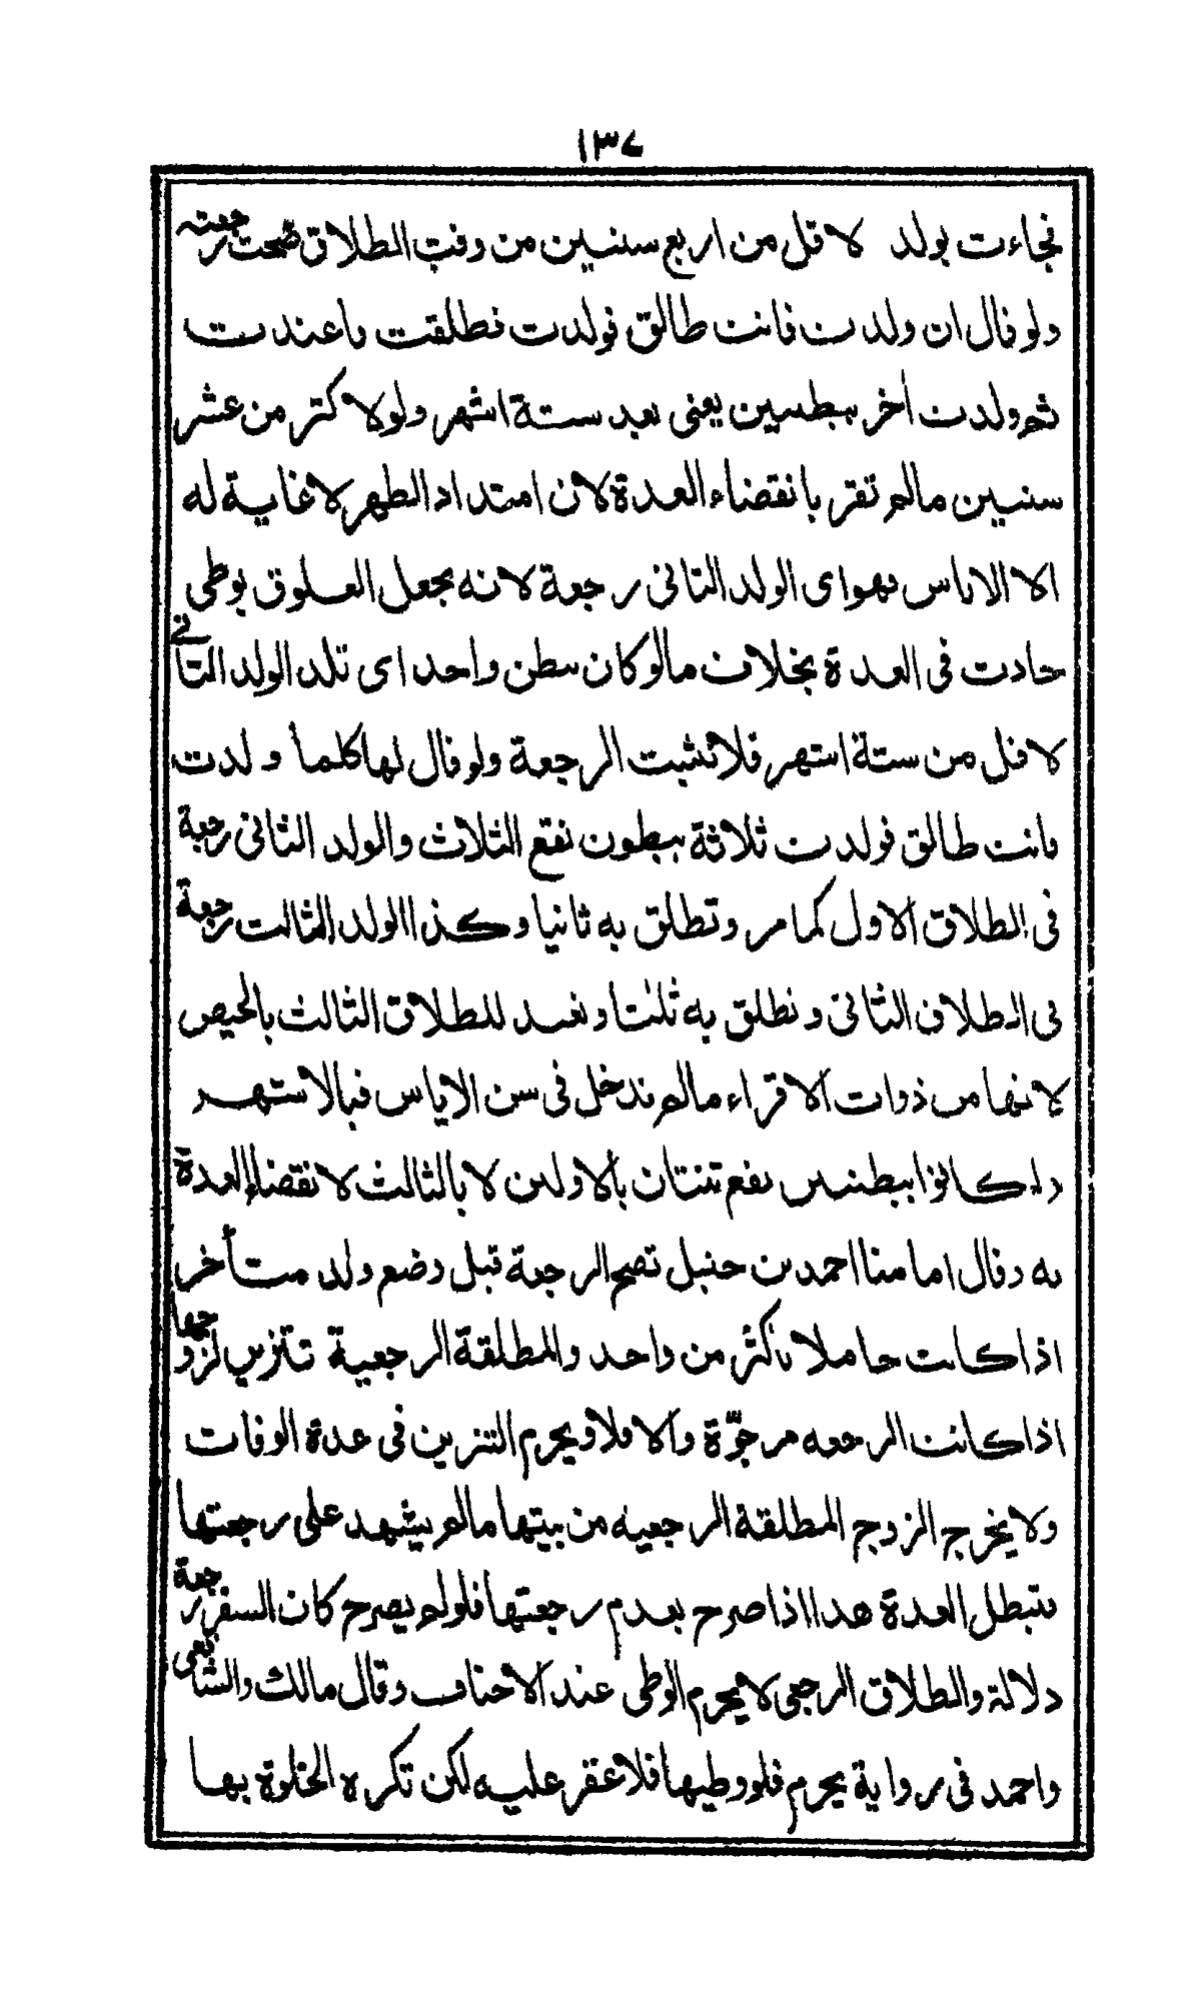 ١٣٧
فجاءت بولد لاقل من اربع سنين من وقت الطلاق صحت رجعته
ولو قال ان ولدت فانت طالق فولدت فطلقت فاعتدت
ثم ولدت آخر ببطنين يعنى بعد ستة اشهر ولو لاكثر من عشر
سنين مالم تقر بانقضاء العدة لان امتداد الطهر لا غاية له
الا الاياس فهو اى الولد الثانى رجعة لانه يجعل العلوق بوطى
حادث فى العدة بخلاف مالو كان ببطن واحد اى تلد الولد الثانى
لاقل من ستة اشهر فلا تثبت الرجعة ولو قال لها كلما ولدت
فانت طالق فولدت ثلاثة ببطون تقع الثلاث والولد الثانى رجعة
فى الطلاق الاول كما مر وتطلق به ثانيا وكذا الولد الثالث رجعة
فى الطلاق الثانى وتطلق به ثلثا وتعتد للطلاق الثالث بالحيض
لانها من ذوات الاقراء مالم تدخل فى سن الاياس فبالاشهر
ولو كانوا ببطنين يقع ثنتان بالاولين لا بالثالث لانقضاء العدة
به وقال امامنا احمد بن حنبل تصح الرجعة قبل وضع ولد متأخر
اذا كانت حاملا باكثر من واحد والمطلقة الرجعية تتزين لزوجها
اذا كانت الرجعه مرجوّة والا فلا ويحرم التزين فى عدة الوفات
ولا يخرج الزوج المطلقة الرجعيه من بيتها مالم يشهد على رجعتها
فتبطل العدة هذا اذا صرح بعدم رجعتها فلو لم يصرح كان السفر رجعة
دلالة والطلاق الرجعى لا يحرم الوطى عند الاحناف وقال مالك والشافعى
واحمد فى رواية يحرم فلو وطيها فلا عقر عليه لكن تكره الخلوة بها